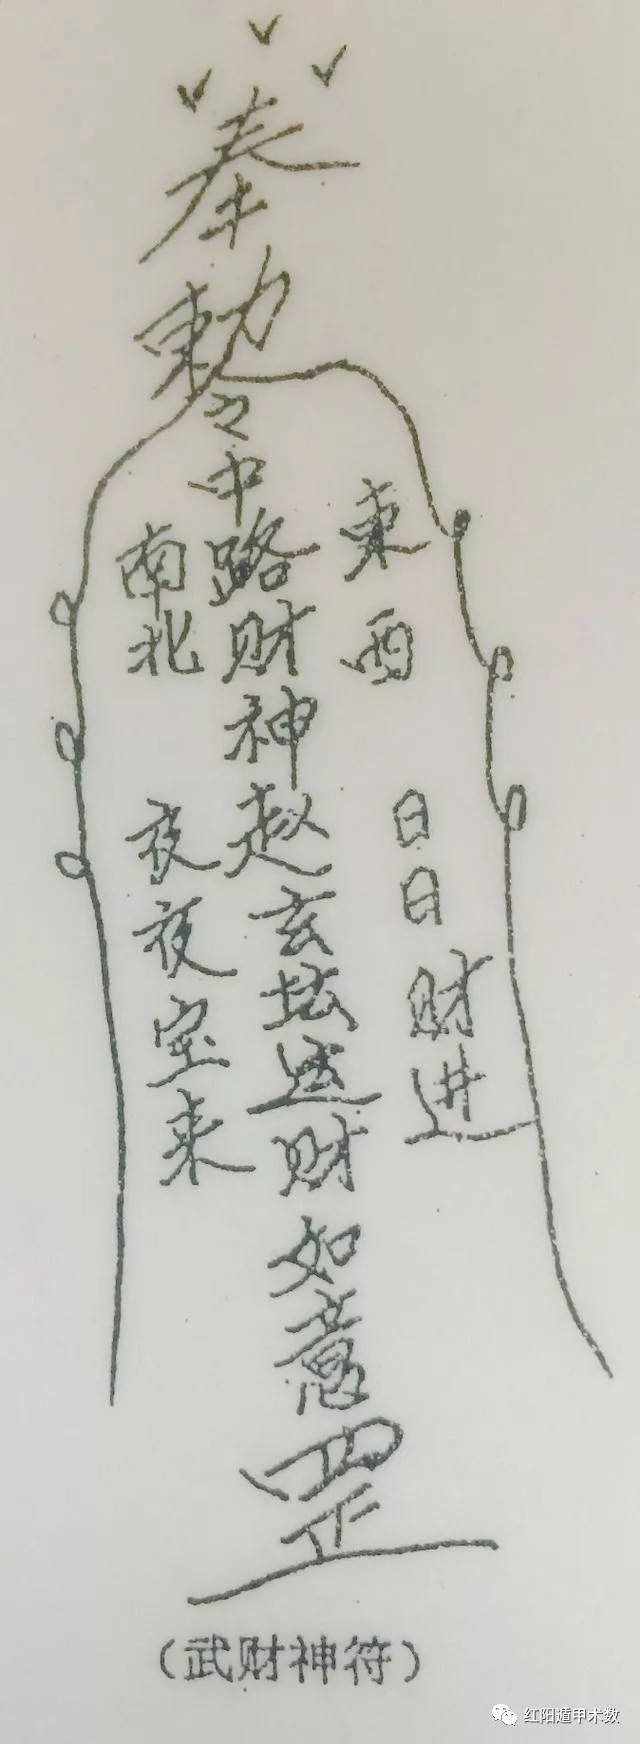 奉
勅
之中路财神赵玄坛送财如意
罡
東西
南北
日日财进
夜夜宝来
（武财神符）
红阳遁甲术数